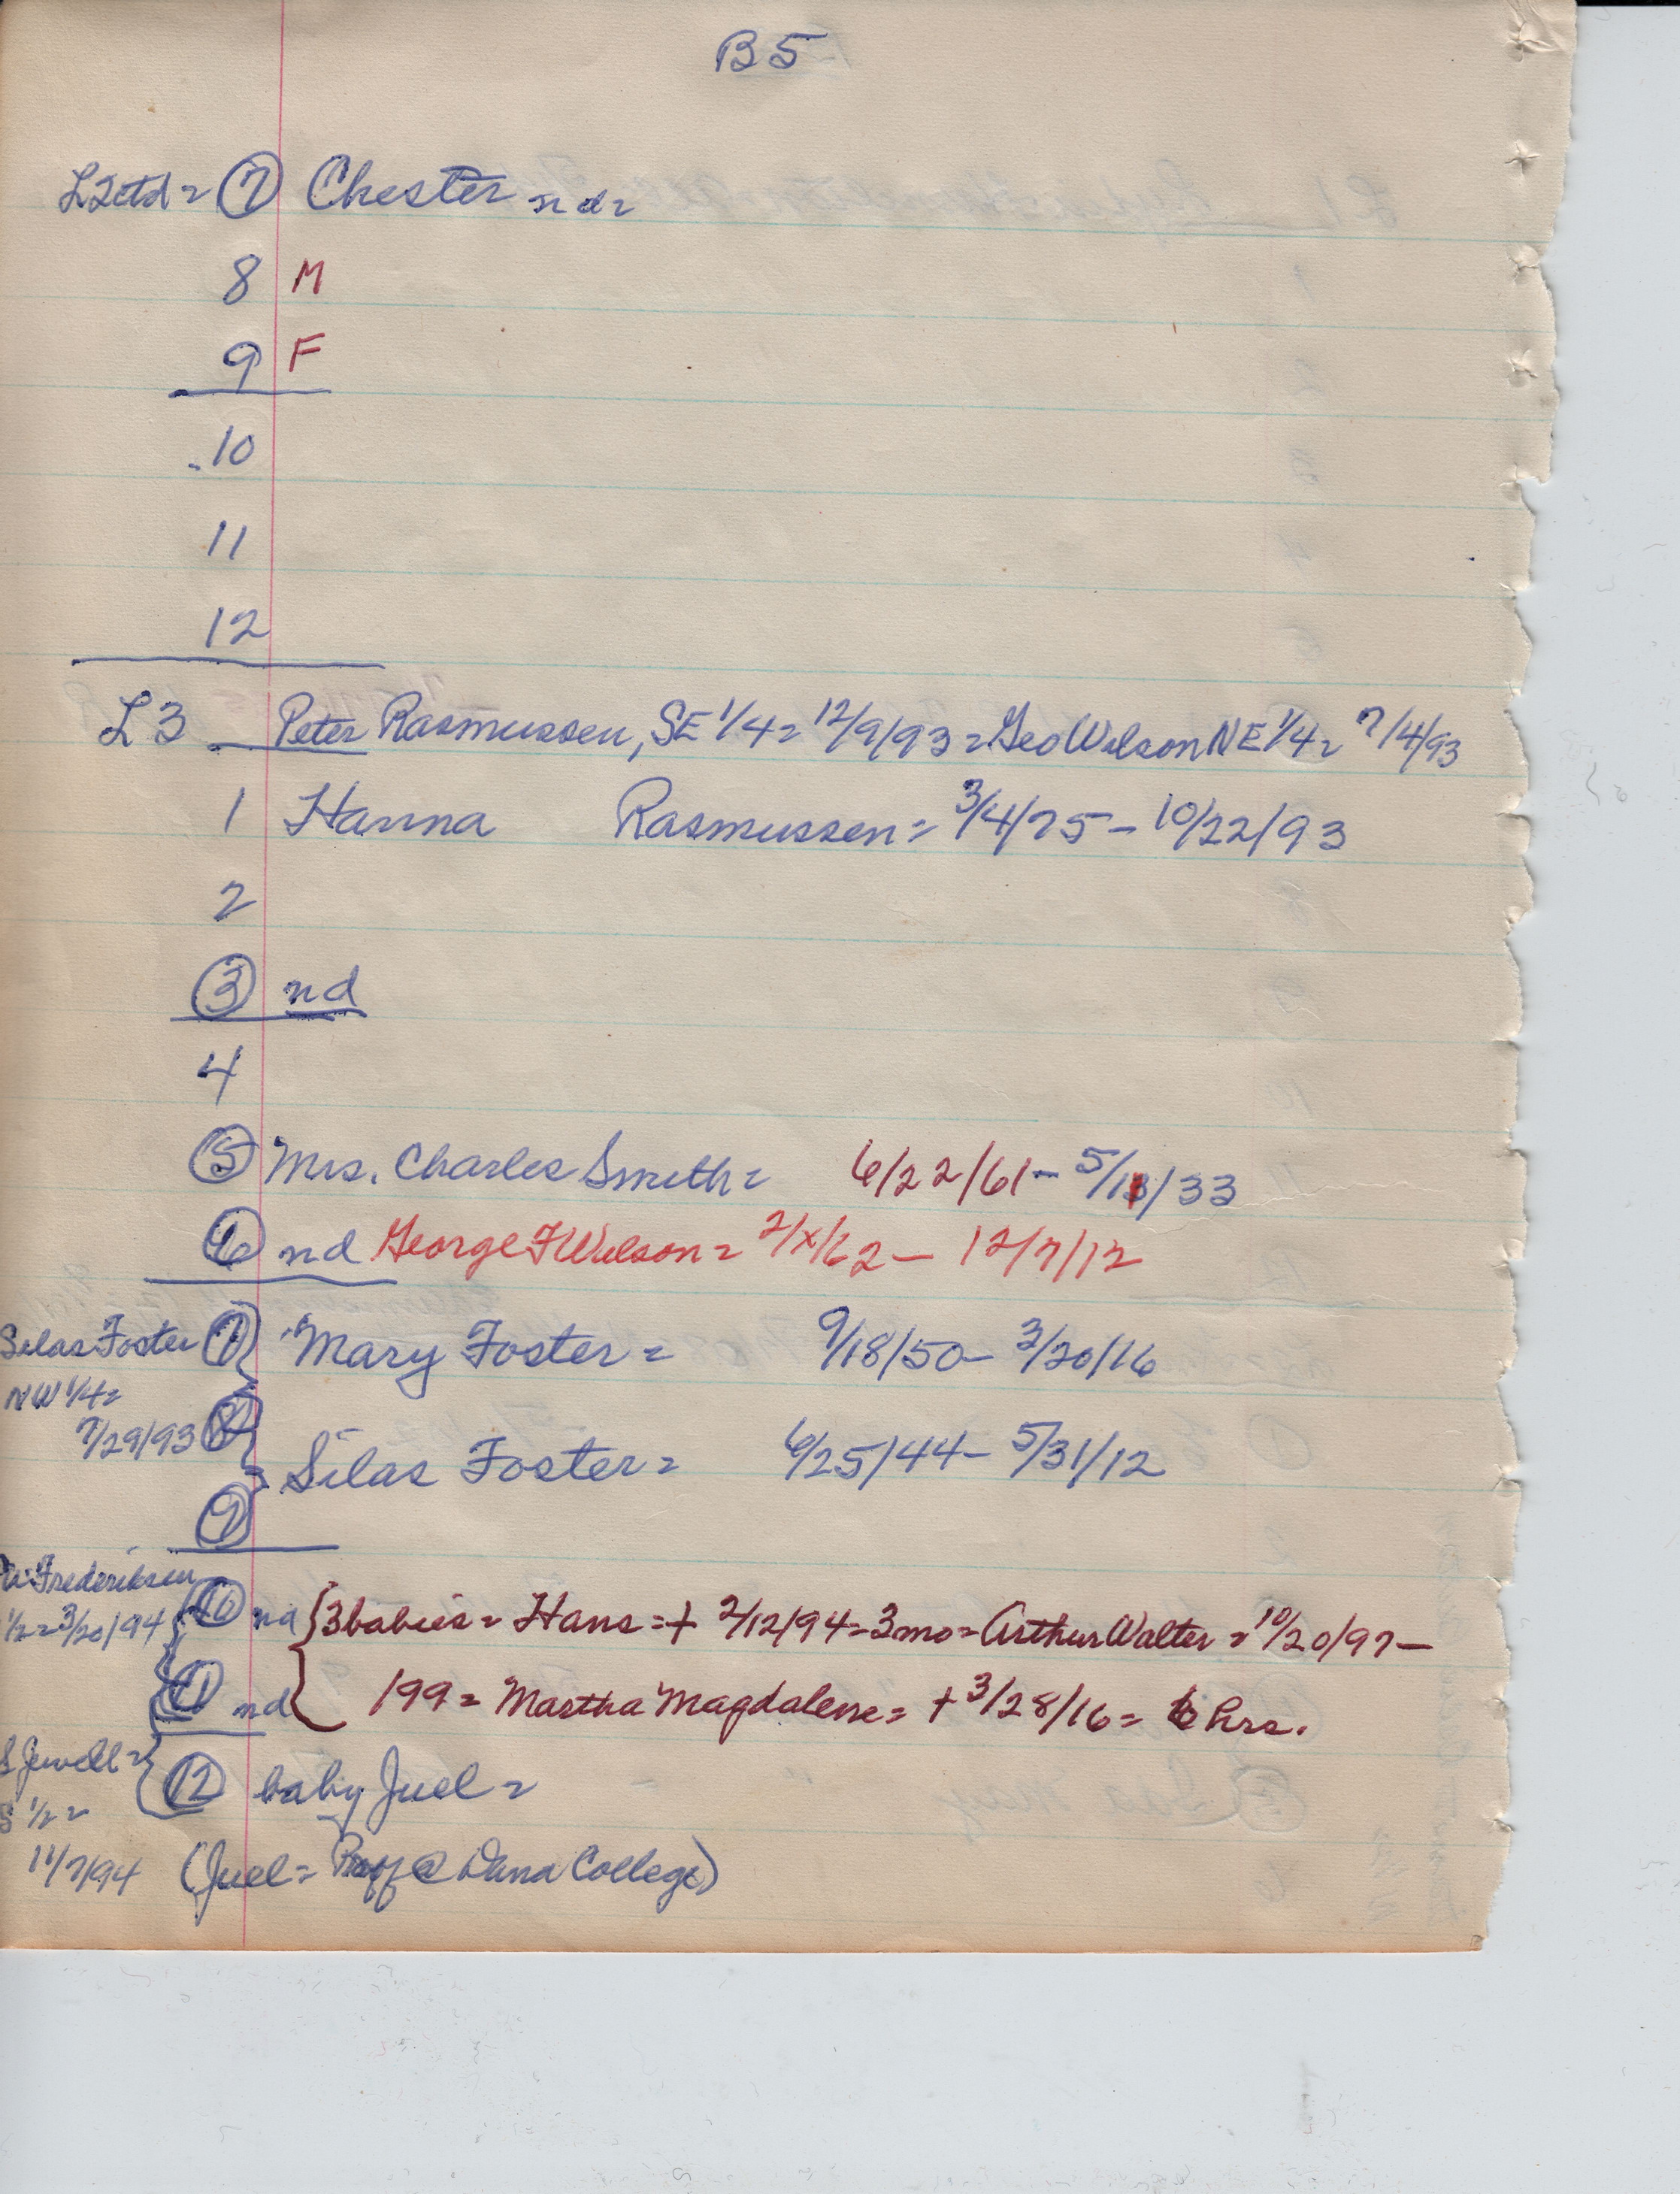 B5
L2ctd = 7 Chester nd =
8 M
9 F
10
11
12
L3 Peter Rasmussen, SE 1/4 = 12/9/93 = Geo Wilson NE 1/4 = 7/4/93
1 Hanna Rasmussen = 3/4/75 - 10/22/93
2
3 nd
4
5 Mrs. Charles Smith = 6/22/61 - 5/ /33
6 nd George F Wilson = 2/x/62 - 12/7/17
Silas Foster 7 Mary Foster = 9/18/50 - 3/20/16
NW 1/4 =
7/29/93 8
Silas Foster = 6/25/44 - 5/31/12
9
Frederiksen
1/2 = 3/20/94 10 nd {3 babies = Hans = + 2/12/94 = 3 mo = Arthur Walter = 10/20/97 -
11 nd 199 = Martha Magdalene = + 3/28/16 = 6 hrs.
S Jewell = 12 baby Juel =
S 1/2 =
11/7/94 (Juel = Prof @ Dana College)